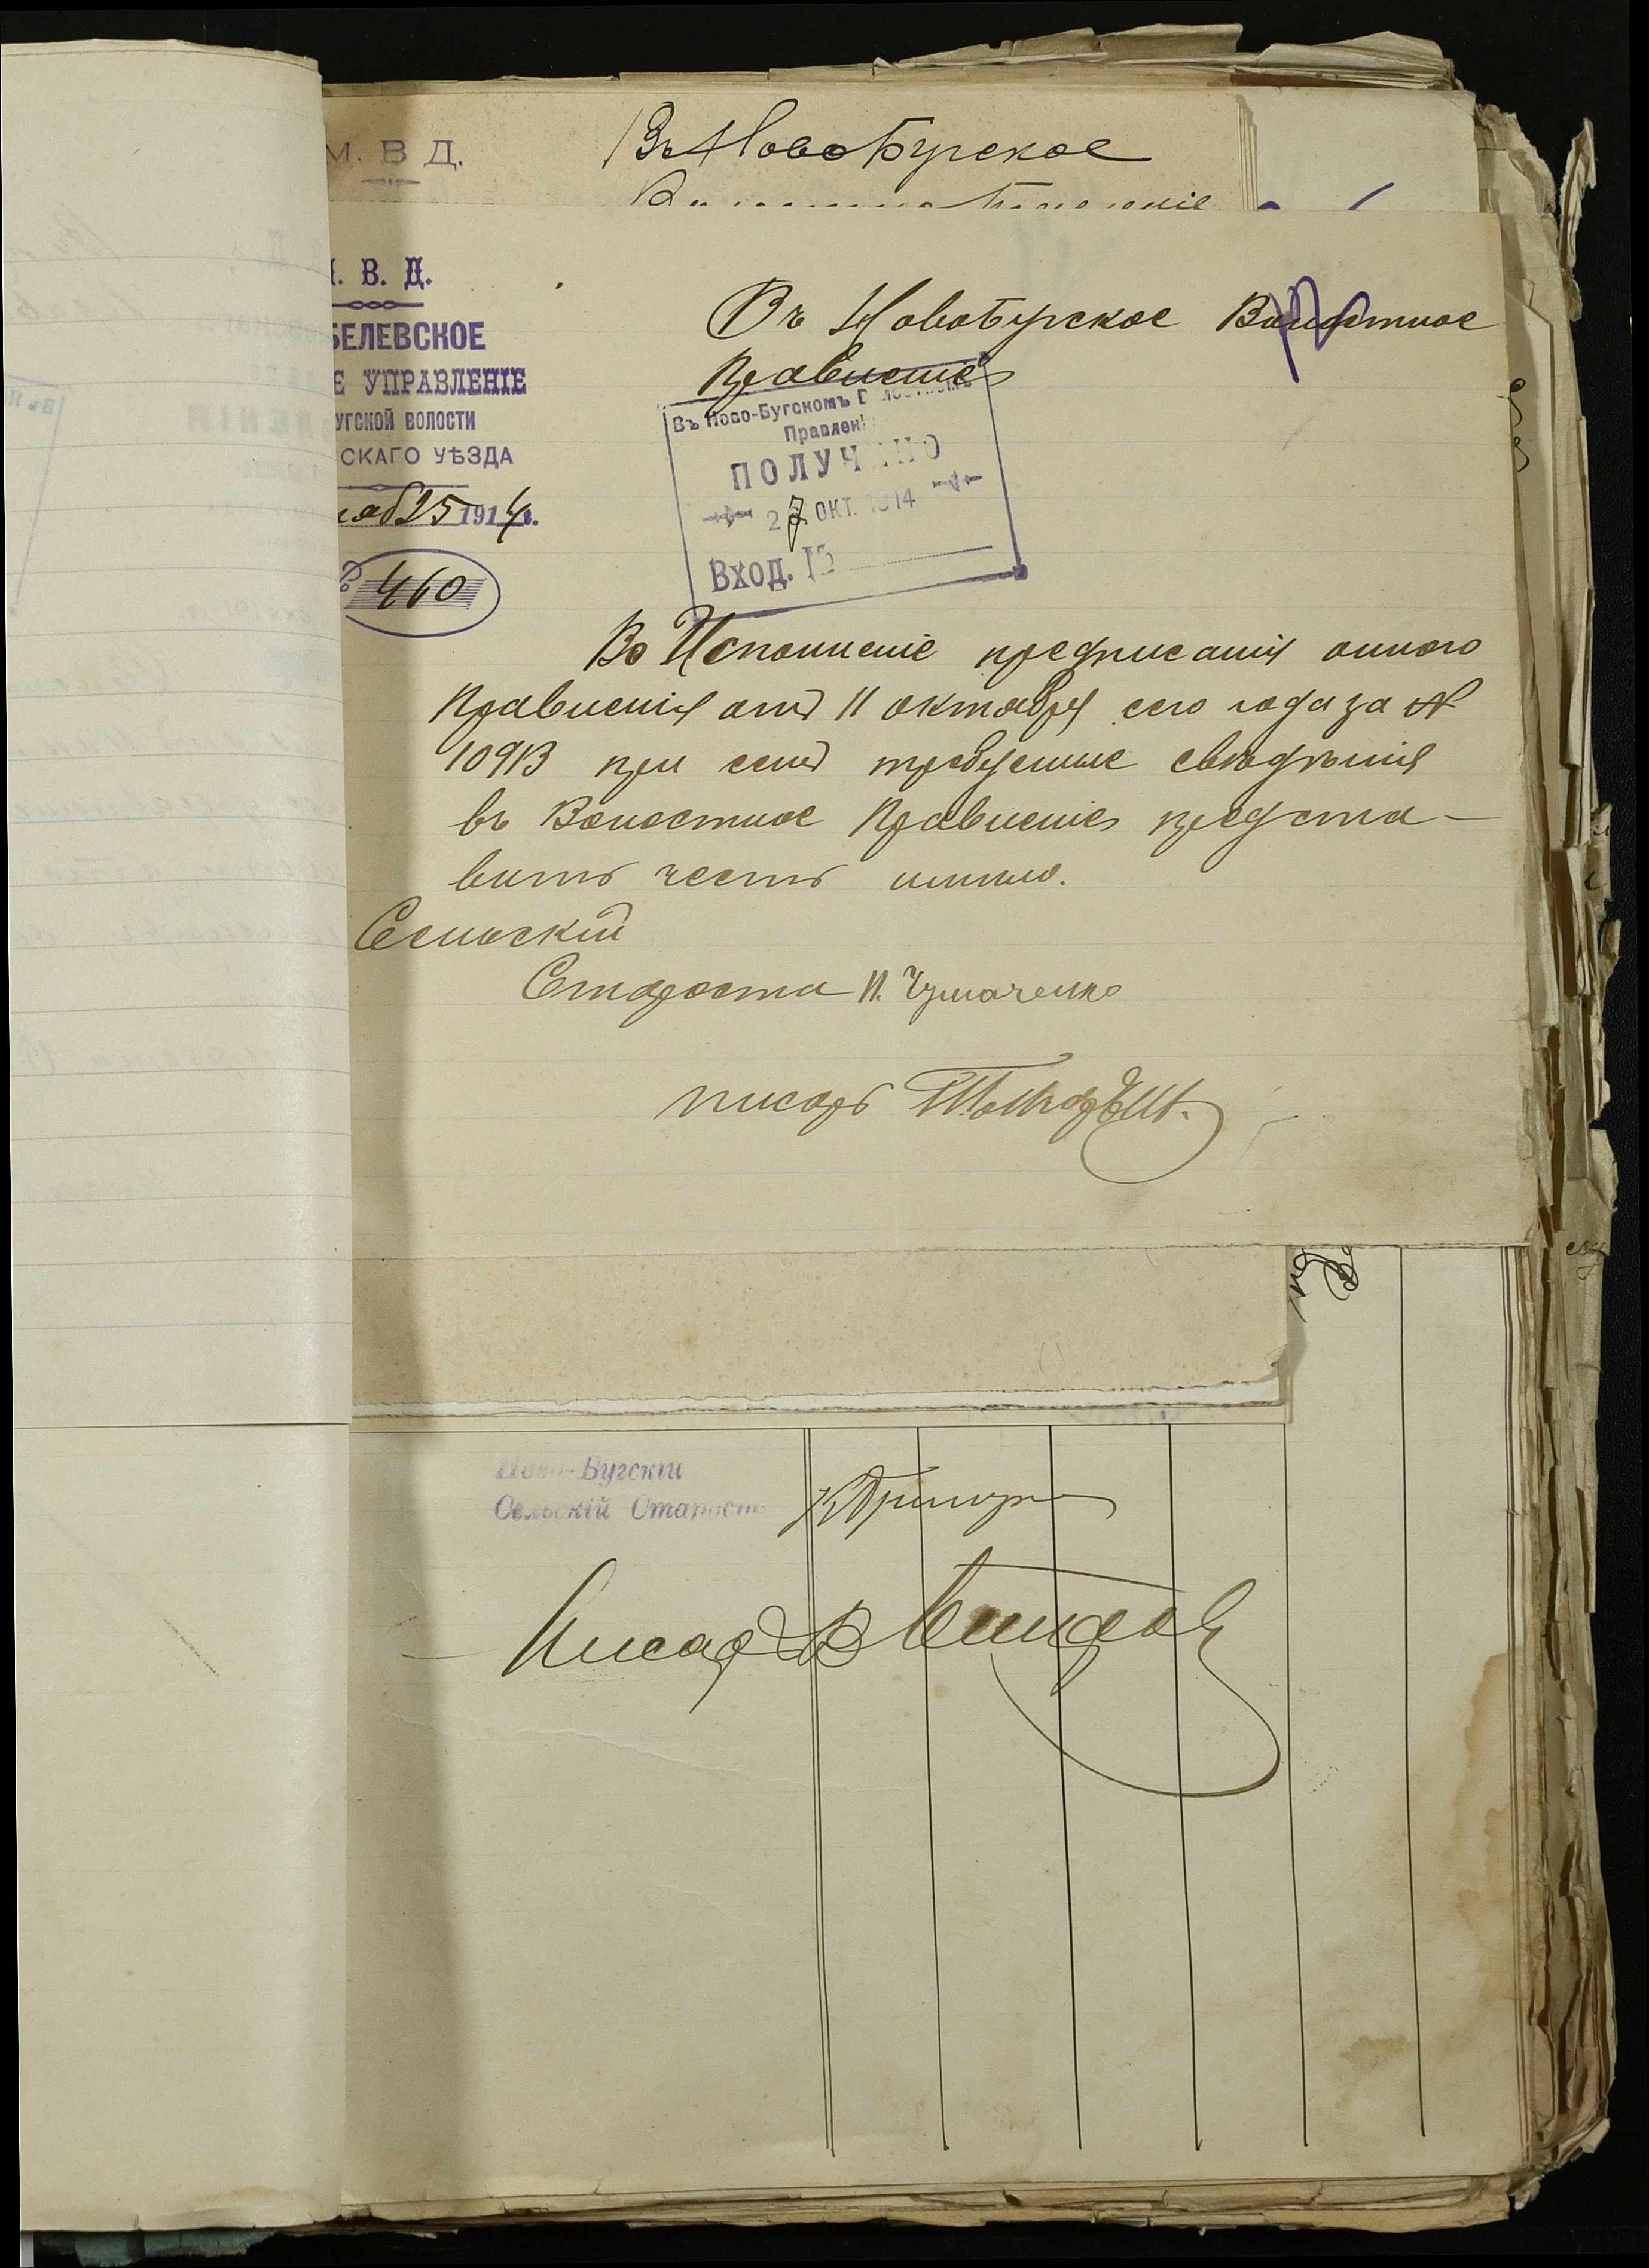 М. В Д.
Въ НовоБугское
. В. Д.
БЕЛЕВСКОЕ
Е УПРАВЛЕНІЕ
УГСКОЙ ВОЛОСТИ
СКАГО УѢЗДА
25 1914 г.
№ 460
Въ Новобугское Волостное
Правленіе
Въ Ново-Бугскомъ
Правлен
ПОЛУЧЕНО
27 ОКТ. 1914
Вход. №
Во Исполненіе предписанія онного
Правленія отъ 11 октября сего года за №
10913 при семъ требуемые свѣдѣнія
въ Волостное Правленіе предста-
вить честь имѣю.
Сельскій
Староста И. Чумаченко
писарь
Ново-Бугскій
Сельскій Староста
Писарь